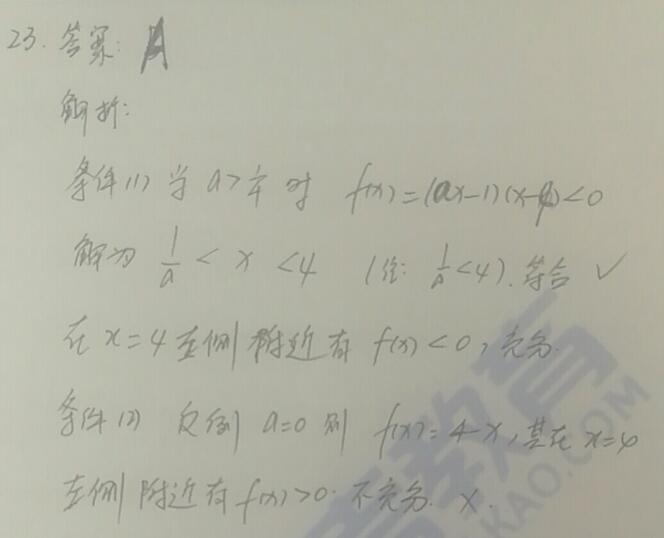 23. 答案: A
解析:
条件(1) 当 a>1/4 时 f(x)=(ax-1)(x-4)<0
解为 1/a < x < 4 (注: 1/a<4). 符合 ✓
在 x=4 左侧附近有 f(x)<0, 充分.
条件(2) 反例 a=0 则 f(x)=4-x, 其在 x=4
左侧附近有 f(x)>0. 不充分. ×.
教育
KAO.COM